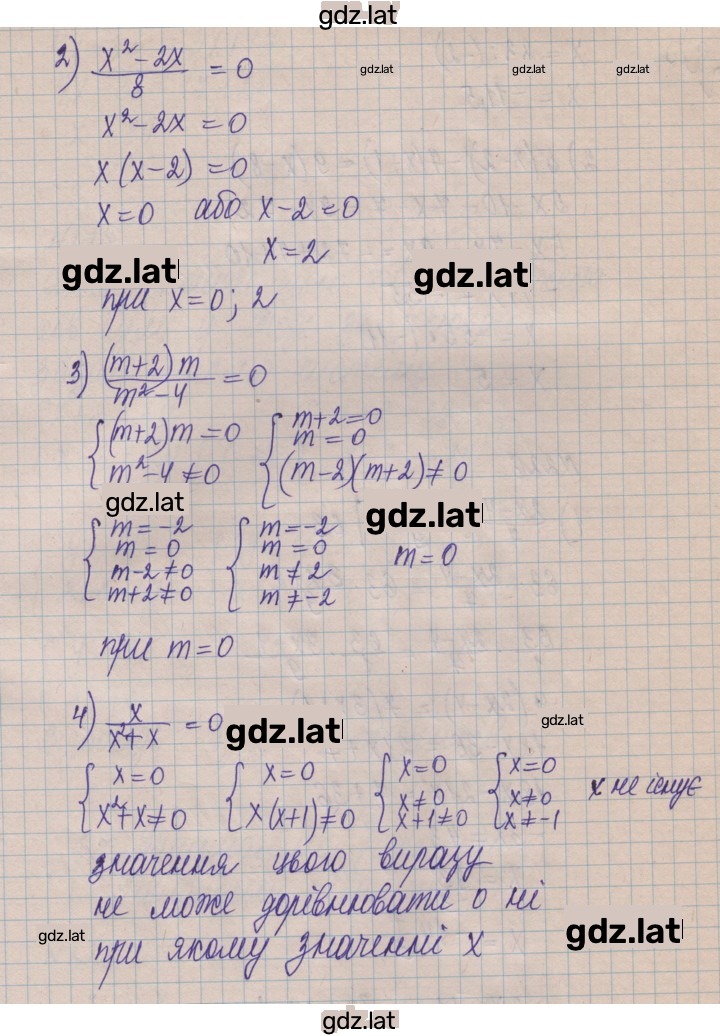 gdz.lat
2) (x² - 2x)/8 = 0
gdz.lat gdz.lat gdz.lat
x² - 2x = 0
x(x - 2) = 0
x = 0 або x - 2 = 0
x = 2
gdz.lat gdz.lat
при x = 0; 2
3) ((m+2)m)/(m² - 4) = 0
{ (m+2)m = 0 { m+2 = 0
m = 0
m² - 4 ≠ 0 (m-2)(m+2) ≠ 0
gdz.lat gdz.lat
{ m = -2 { m = -2
m = 0 m = 0 m = 0
m - 2 ≠ 0 m ≠ 2
m + 2 ≠ 0 m ≠ -2
при m = 0
4) x/(x² + x) = 0 gdz.lat gdz.lat
{ x = 0 { x = 0 { x = 0 { x = 0
x ≠ 0 x ≠ 0 x не існує
x² + x ≠ 0 x(x+1) ≠ 0 x+1 ≠ 0 x ≠ -1
значення цього виразу
не може дорівнювати 0 ні
gdz.lat при якому значенні x gdz.lat
gdz.lat